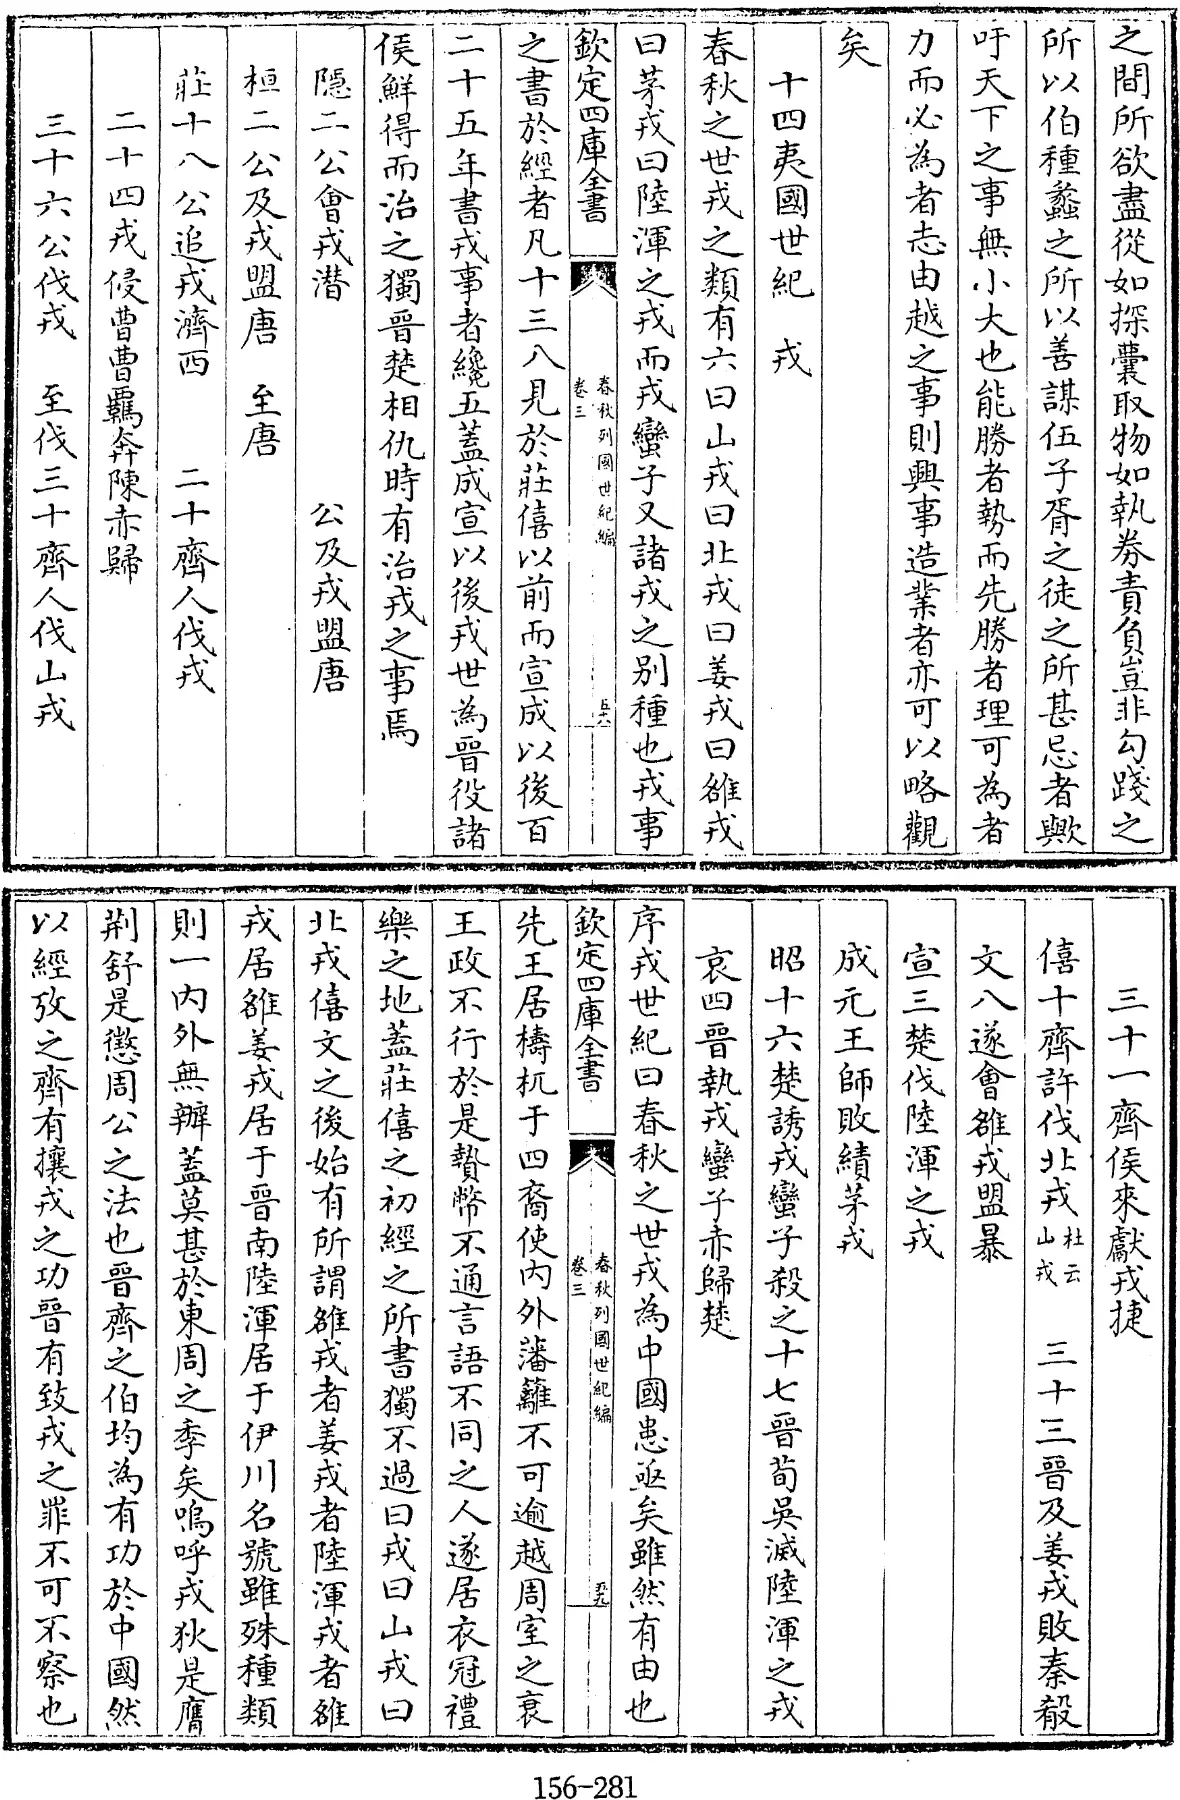 之間所欲盡從如探囊取物如執券責負豈非勾踐之
所以伯種蠡之所以善謀伍子胥之徒之所甚忌者歟
吁天下之事無小大也能勝者勢而先勝者理可為者
力而必為者志由越之事則興事造業者亦可以略觀
矣
十四夷國世紀　戎
春秋之世戎之類有六曰山戎曰北戎曰姜戎曰雒戎
曰茅戎曰陸渾之戎而戎蠻子又諸戎之别種也戎事
欽定四庫全書
春秋列國世紀編
卷三
五十八
之書於經者凡十三八見於莊僖以前而宣成以後百
二十五年書戎事者纔五蓋成宣以後戎世為晉役諸
侯鮮得而治之獨晉楚相仇時有治戎之事焉
隱二公會戎潛　公及戎盟唐
桓二公及戎盟唐　至唐
莊十八公追戎濟西　二十齊人伐戎
二十四戎侵曹曹羈奔陳赤歸
三十六公伐戎　至伐三十齊人伐山戎
三十一齊侯來獻戎捷
僖十齊許伐北戎杜云山戎　三十三晉及姜戎敗秦殽
文八遂會雒戎盟暴
宣三楚伐陸渾之戎
成元王師敗績茅戎
昭十六楚誘戎蠻子殺之十七晉荀吳滅陸渾之戎
哀四晉執戎蠻子赤歸楚
序戎世紀曰春秋之世戎為中國患亟矣雖然有由也
欽定四庫全書
春秋列國世紀編
卷三
五十九
先王居檮杌于四裔使内外藩籬不可逾越周室之衰
王政不行於是贄幣不通言語不同之人遂居衣冠禮
樂之地蓋莊僖之初經之所書獨不過曰戎曰山戎曰
北戎僖文之後始有所謂雒戎者姜戎者陸渾戎者雒
戎居雒姜戎居于晉南陸渾居于伊川名號雖殊種類
則一内外無辨蓋莫甚於東周之季矣嗚呼戎狄是膺
荆舒是懲周公之法也晉齊之伯均為有功於中國然
以經攷之齊有攘戎之功晉有致戎之罪不可不察也
156-281